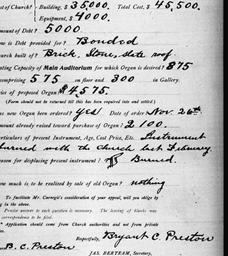 of Church? - Building, $35000. Total Cost, $45,500.
Equipment, $4000.
Amount of Debt? 5000
is Debt provided for? Bonded
Church built? Brick, Stone, slate roof.
ating Capacity of Main Auditorium for which Organ is desired? 875
comprising 575 on floor and 300 in Gallery.
ice of proposed Organ $4,575.
(Form should not be returned till this has been inquired into and settled)
new Organ been ordered? yes Date of order Nov. 26th
mount already raised toward purchase of Organ? 2100.
articulars of present Instrument, Age, Cost Price, Etc. Instrument
burned with the church last February
reason for displacing present instrument? Burned.
ow much is to be realized by sale of old Organ? nothing
To facilitate Mr. Carnegie's consideration of your appeal, will you oblige by
ng in the above.
Precise answer to each question is necessary. The leaving of blanks was
correspondence to be obviated.
Application should come from Church authorities and not from private
Respectfully, Bryant C. Preston
B. C. Preston
JAS. BERTRAM, Secretary,